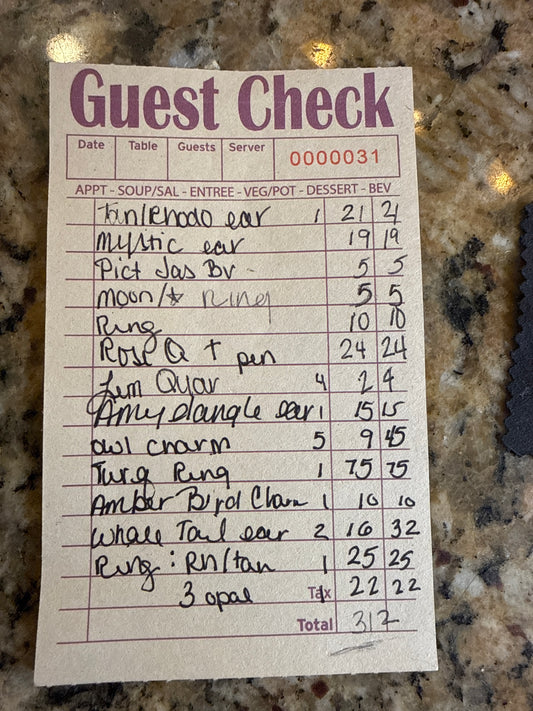 Guest Check
Date Table Guests Server 0000031
APPT - SOUP/SAL - ENTREE - VEG/POT - DESSERT - BEV
Tan/Rhodo ear 1 21 21
Mystic ear 19 19
Pict Jas Bv - 5 5
Moon/☆ Ring 5 5
Ring 10 10
Rose Q T pen 24 24
Lem Quar 4 2 4
Amy dangle ear 1 15 15
owl charm 5 9 45
Turq Ring 1 75 75
Amber Bird Charm 1 10 10
Whale Tail ear 2 16 32
Ring : Rh/tan 1 25 25
3 opal Tax 22 22
Total 312